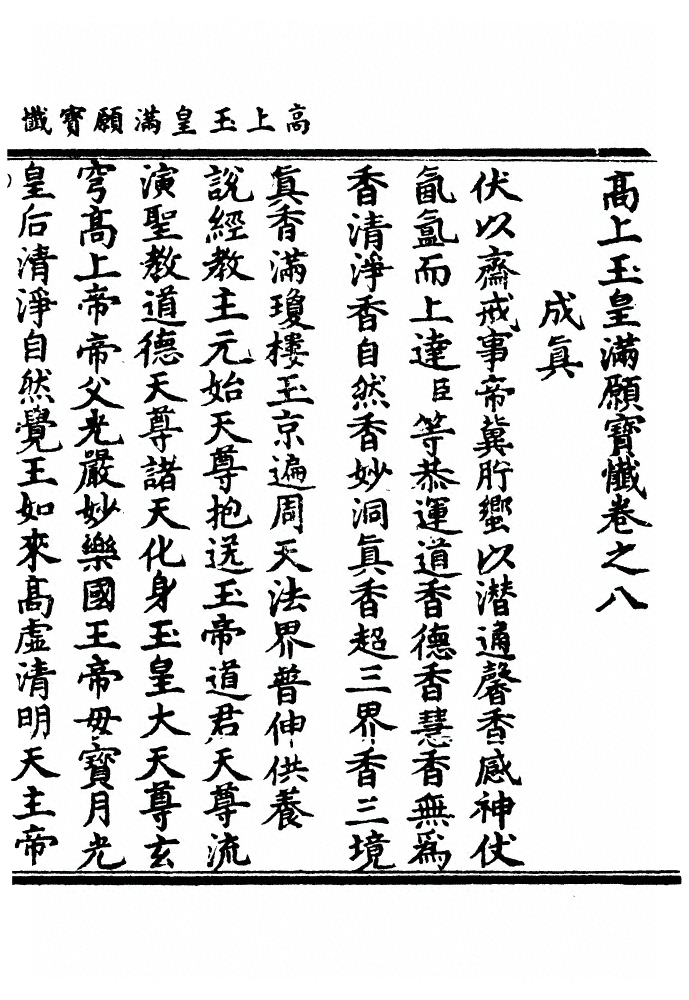 高上玉皇滿願寶懺
高上玉皇滿願寶懺卷之八
成眞
伏以齋戒事帝冀肸蠁以潛通馨香感神伏
氤氳而上達臣等恭運道香德香慧香無爲
香清淨香自然香妙洞眞香超三界香三境
眞香滿瓊樓玉京遍周天法界普伸供養
說經教主元始天尊抱送玉帝道君天尊流
演聖教道德天尊諸天化身玉皇大天尊玄
穹高上帝帝父光嚴妙樂國王帝母寶月光
皇后清淨自然覺王如來高虛清明天主帝